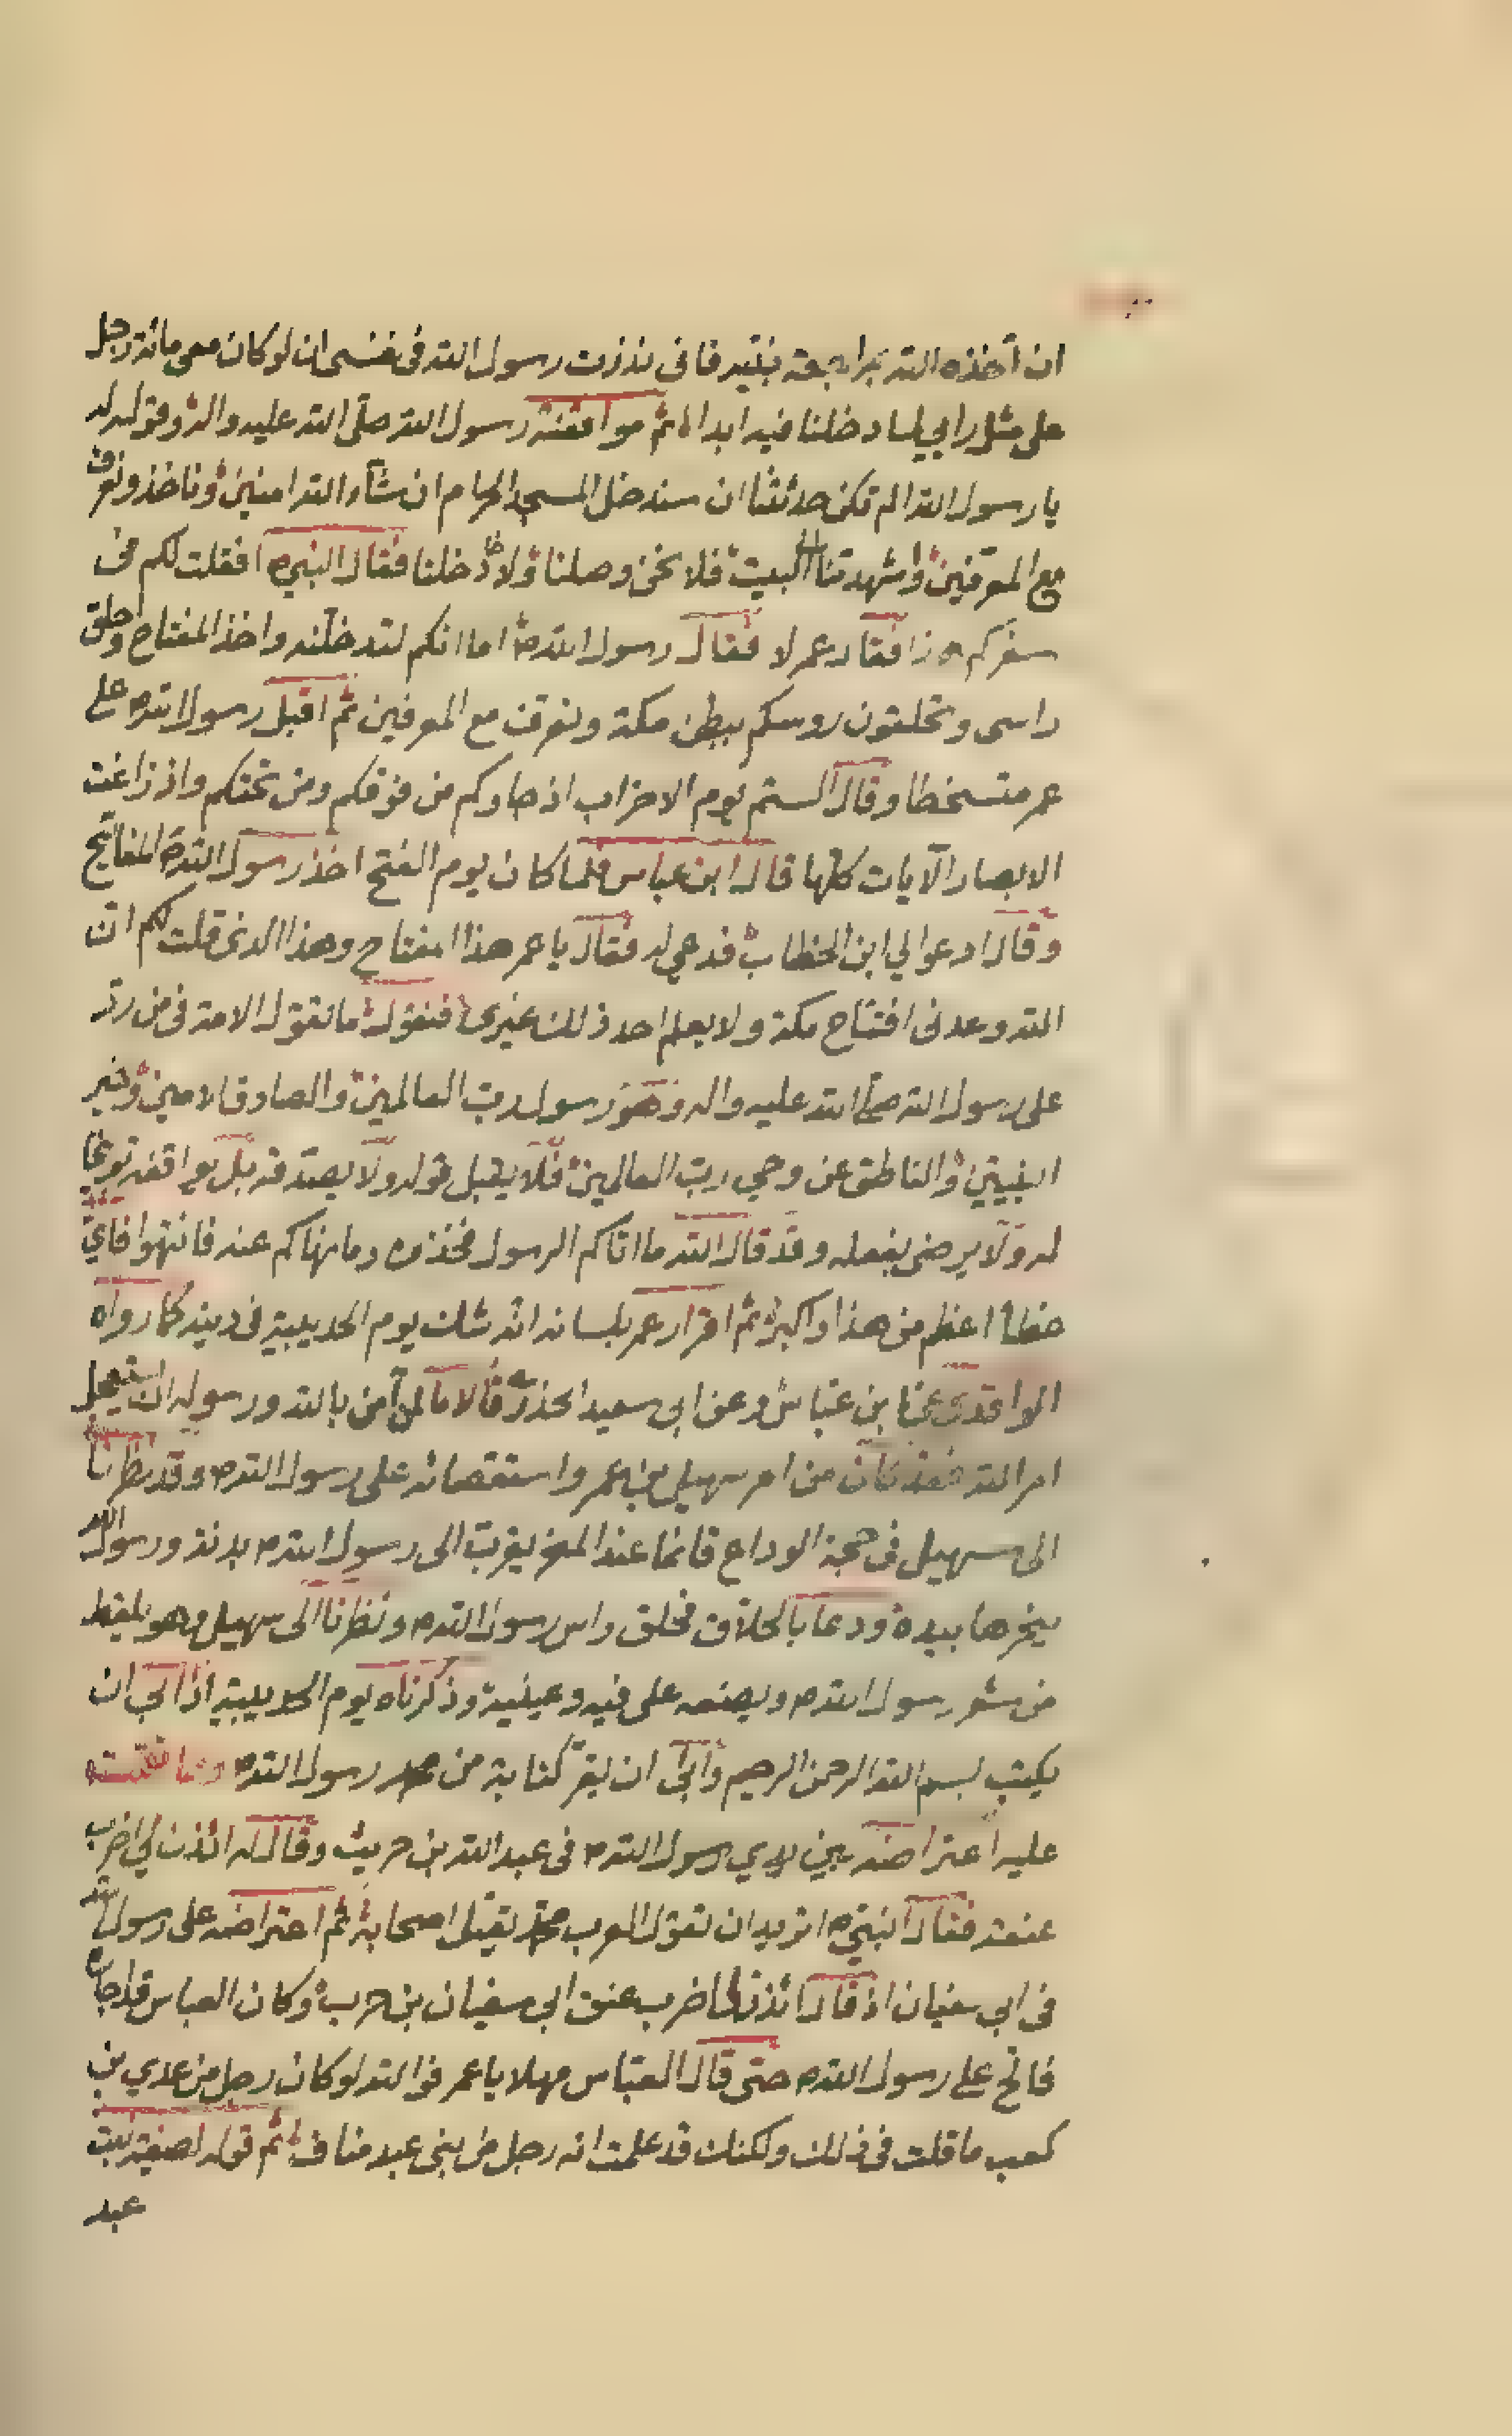 ان آخذه الله برابعة بنية فانى نذرت رسول الله فى نفسى ان لو كان معى مائة رجل
على مثل رايي لما دخلنا فيه ابدا ثم موافقته رسول الله صلى الله عليه واله وقوله له
يا رسول الله الم تكن حدثتنا ان سندخل المسجد الحرام ان شآء الله امنين وناخذ ونعرف
مع المعرفين وا شهدتنا البيت فلا نحن وصلنا ولا دخلنا فقال النبي افقلت لكم فى
سفركم هذا فقال عمر لا فقال رسول الله ص اما انكم لتدخلنه واخذ المفتاح وحلق
راسى وتحلقون روسكم ببطن مكة ونعرف مع المعرفين ثم اقبل رسول الله ص على
عمر متسخطا وقال الستم يوم الاحزاب اذ جاوكم من فوقكم ومن تحتكم واذ زاغت
الابصار الآيات كلها قال ابن عباس فلما كان يوم الفتح اخذ رسول الله ص المفاتيح
وقال ادعوا لي ابن الخطاب فدعي له فقال يا عمر هذا المفتاح وهذا الذى قلت لكم ان
الله وعدنى افتتاح مكة ولا يعلم احد ذلك غيرى فنقول ما تقول الامة فى من رد
على رسول الله صلى الله عليه واله وهو رسول رب العالمين والصادق الامين وخير
النبيين والناطق عن وحي رب العالمين فلا يقبل قوله ولا يصدقه بل يواقفه توبيخا
له ولا يرضى بفعله وقد قال الله ما اتاكم الرسول فخذوه وما نهاكم عنه فانتهوا فاي
خطأ اعظم من هذا واكبر ثم اقرار عمر بلسانه انه شك يوم الحديبية فى دينه كما رواه
الواقدى عن ابن عباس وعن ابى سعيد الخدرى قالا ما لمن آمن بالله ورسوله ان يستعجل
امر الله فقد كان من امر سهيل بن عمر واستقصائه على رسول الله ص وقد نظرنا
الى سهيل فى حجة الوداع قائما عند المنحر يقرب الى رسول الله ص بدنة ورسول الله
ينحرها بيده ودعا بالحلاق فحلق راس رسول الله ص ونظرنا الى سهيل وهو يلتقط
من شعر رسول الله ص ويضعه على فيه وعينيه وذكرناه يوم الحديبية اذ ابى ان
يكتب بسم الله الرحمن الرحيم وأبى ان يقر كتابة من محمد رسول الله ص
عليه اعتراضه بين يدي رسول الله ص فى عبد الله بن حريث وقال له ائذن لي اضرب
عنقه فقال النبي ص اتريد ان تقول العرب محمد يقتل اصحابه ثم اعتراضه على رسول الله
فى ابى سفيان اذ قال ائذن لى اضرب عنق ابى سفيان بن حرب وكان العباس قد اجاره
فالح على رسول الله ص حتى قال العباس مهلا يا عمر فوالله لو كان رجل من عدي بن
كعب ما قلت فى ذلك ولكنك قد علمت انه رجل من بنى عبد مناف ثم قوله لصفية بنت
عبد